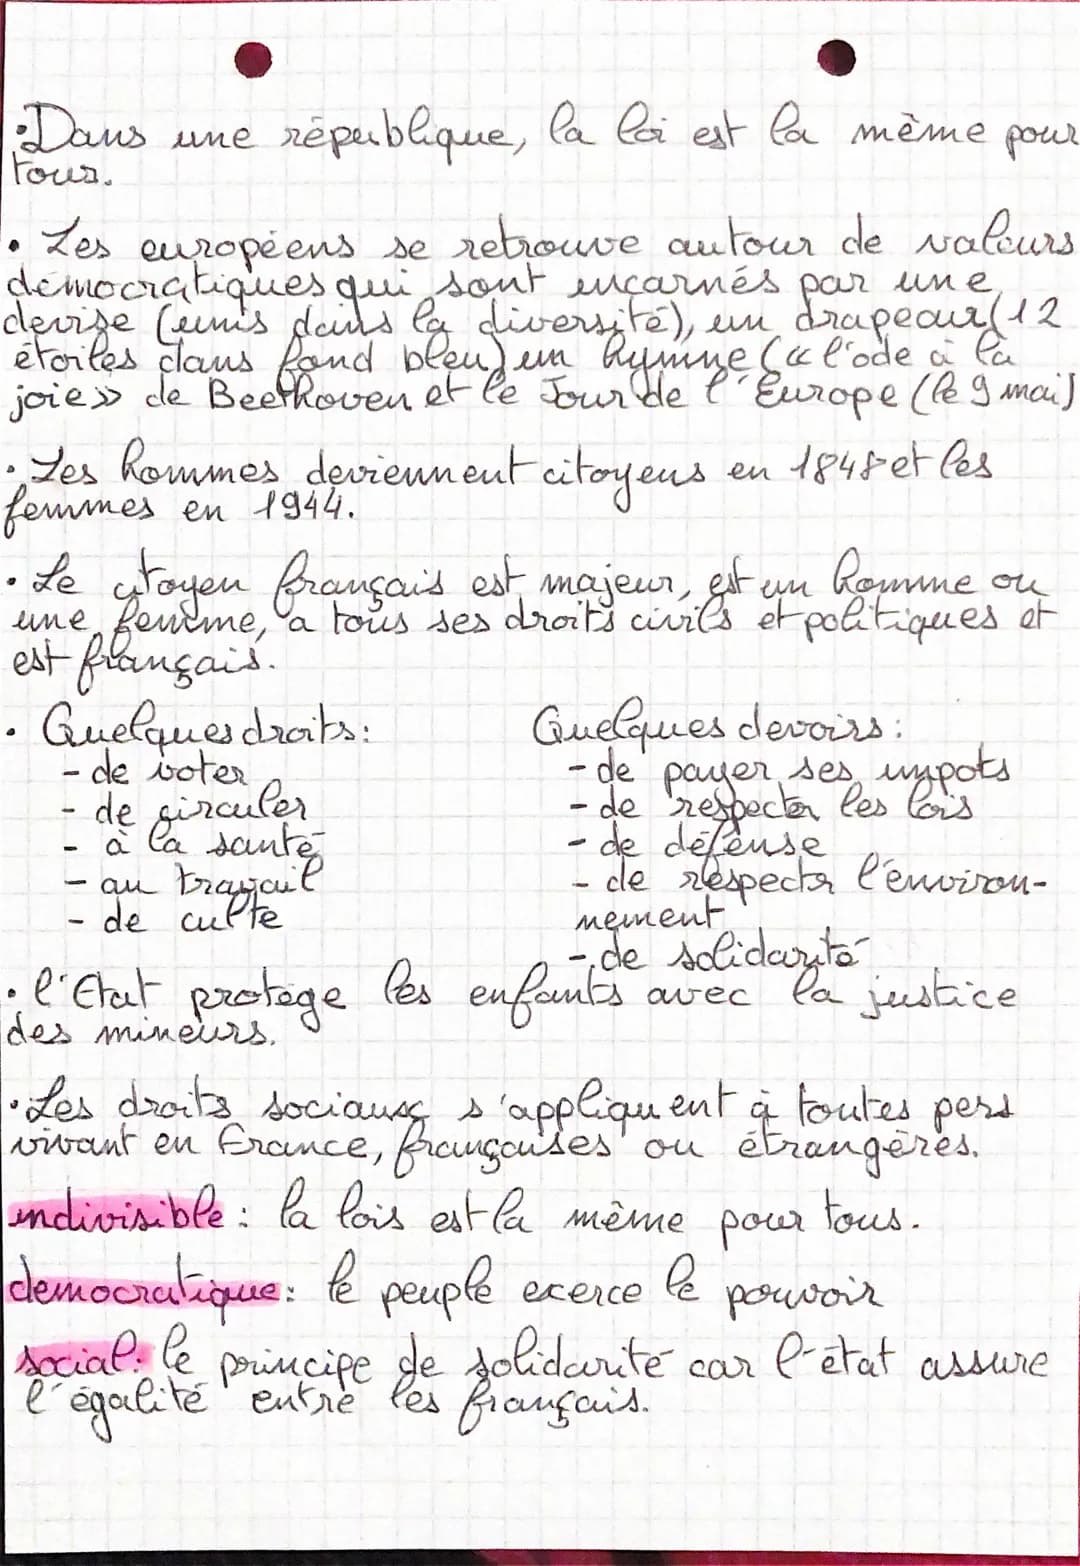 •Dans une république, la loi est la même pour
tous.
• Les européens se retrouve autour de valeurs
démocratiques qui sont incarnés par une
devise (unis dans la diversité), un drapeau (12
étoiles dans fond bleu) un hymne (« l'ode à la
joie » de Beethoven et le Jour de l'Europe (le 9 mai)
• Les hommes deviennent citoyens en 1848 et les
femmes en 1944.
• Le citoyen français est majeur, est un homme ou
une femme, a tous ses droits civils et politiques et
est français.
• Quelques droits:
- de voter
- de circuler
- à la santé
- au travail
- de culte
Quelques devoirs:
- de payer ses impots
- de respecter les lois
- de défense
- de respecter l'environ-
nement
- de solidarité
• l'Etat protège les enfants avec la justice
des mineurs.
• Les droits sociaux s'appliquent à toutes pers
vivant en France, françaises ou étrangères.
indivisible: la lois est la même pour tous.
democratique: le peuple exerce le pouvoir
social: le principe de solidarité car l'état assure
l'égalité entre les français.